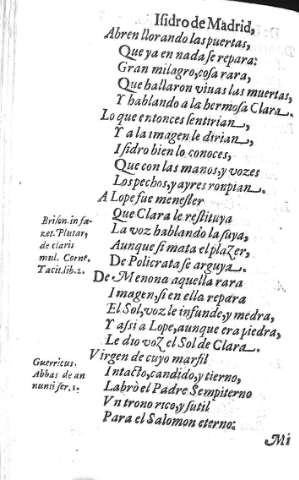 Isidro de Madrid,
Abren llorando las puertas,
Que ya en nada se repara:
Gran milagro, cosa rara,
Que hallaron viuas las muertas,
Y hablando a la hermosa Clara.
Lo que entonces sentirian,
Y a la imagen le dirian,
Isidro bien lo conoces,
Que con las manos, y vozes
Los pechos, y ayres ronpian.
A Lope fue menester
Que Clara le restituya
La voz hablando la suya,
Aunque si mata el plazer,
De Policrata se arguya.
De Menona aquella rara
Imagen, si en ella repara
El Sol, voz le infunde, y medra,
Y assi a Lope, aunque era piedra,
Le dio voz el Sol de Clara.
Virgen de cuyo marfil
Intacto, candido, y tierno,
Labrò el Padre Sempiterno
Vn trono rico, y sutil
Para el Salomon eterno:
Mi
Brison. in fa-
zet. Plutar,
de claris
mul. Corne.
Tacit. lib. 2.
Guerricus.
Abbas de an
nunti ser. 1.